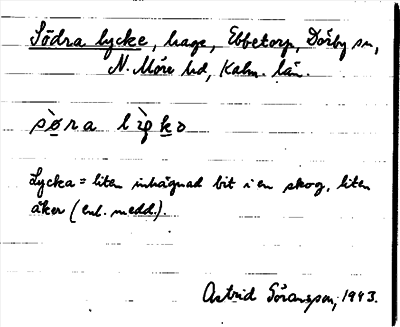 Södra lycke, hage, Ebbetorp, Dörby sn,
N. Möre hd, Kalm. län.
Lycka = liten inhägnad bit i en skog, liten
åker (enl. medd.).
Astrid Göransson, 1943.